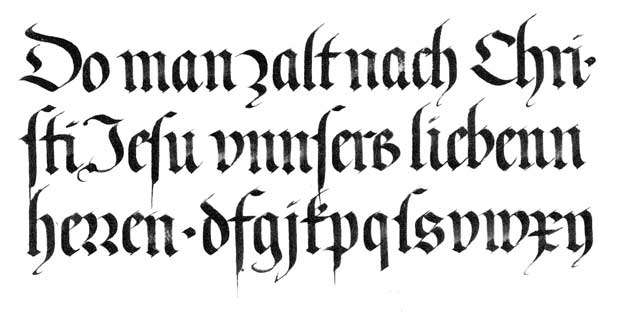 Do man zalt nach Chri-
ſti Jeſu vnnſers liebenn
herren · dfgjkpqſsvwxy